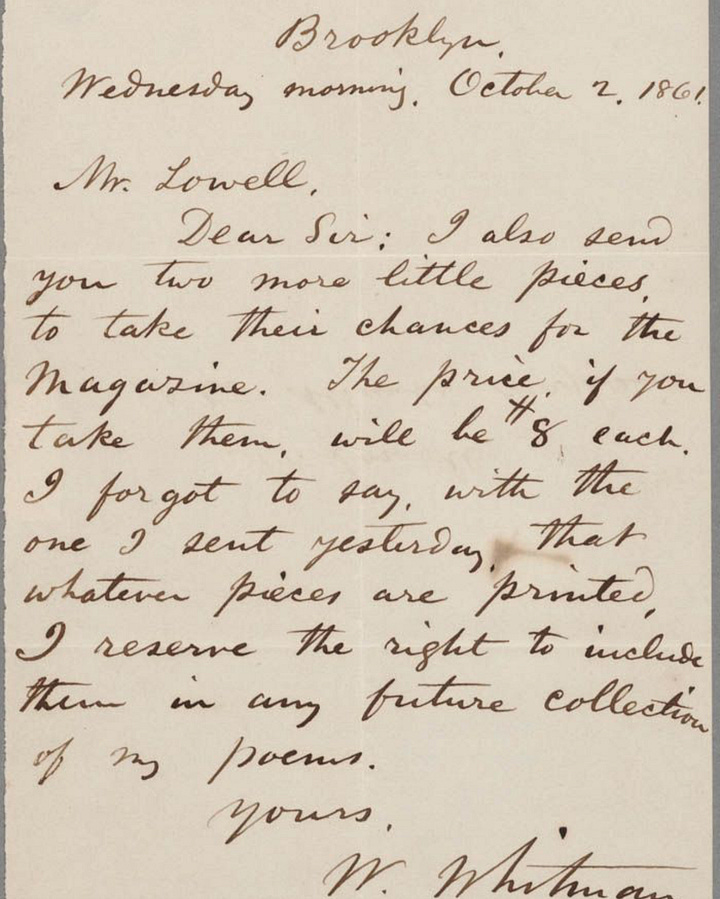 Brooklyn,
Wednesday morning, October 2, 1861.
Mr. Lowell,
Dear Sir: I also send
you two more little pieces,
to take their chances for the
Magazine. The price, if you
take them, will be $8 each.
I forgot to say, with the
one I sent yesterday, that
whatever pieces are printed,
I reserve the right to include
them in any future collection
of my poems.
Yours,
W. Whitman